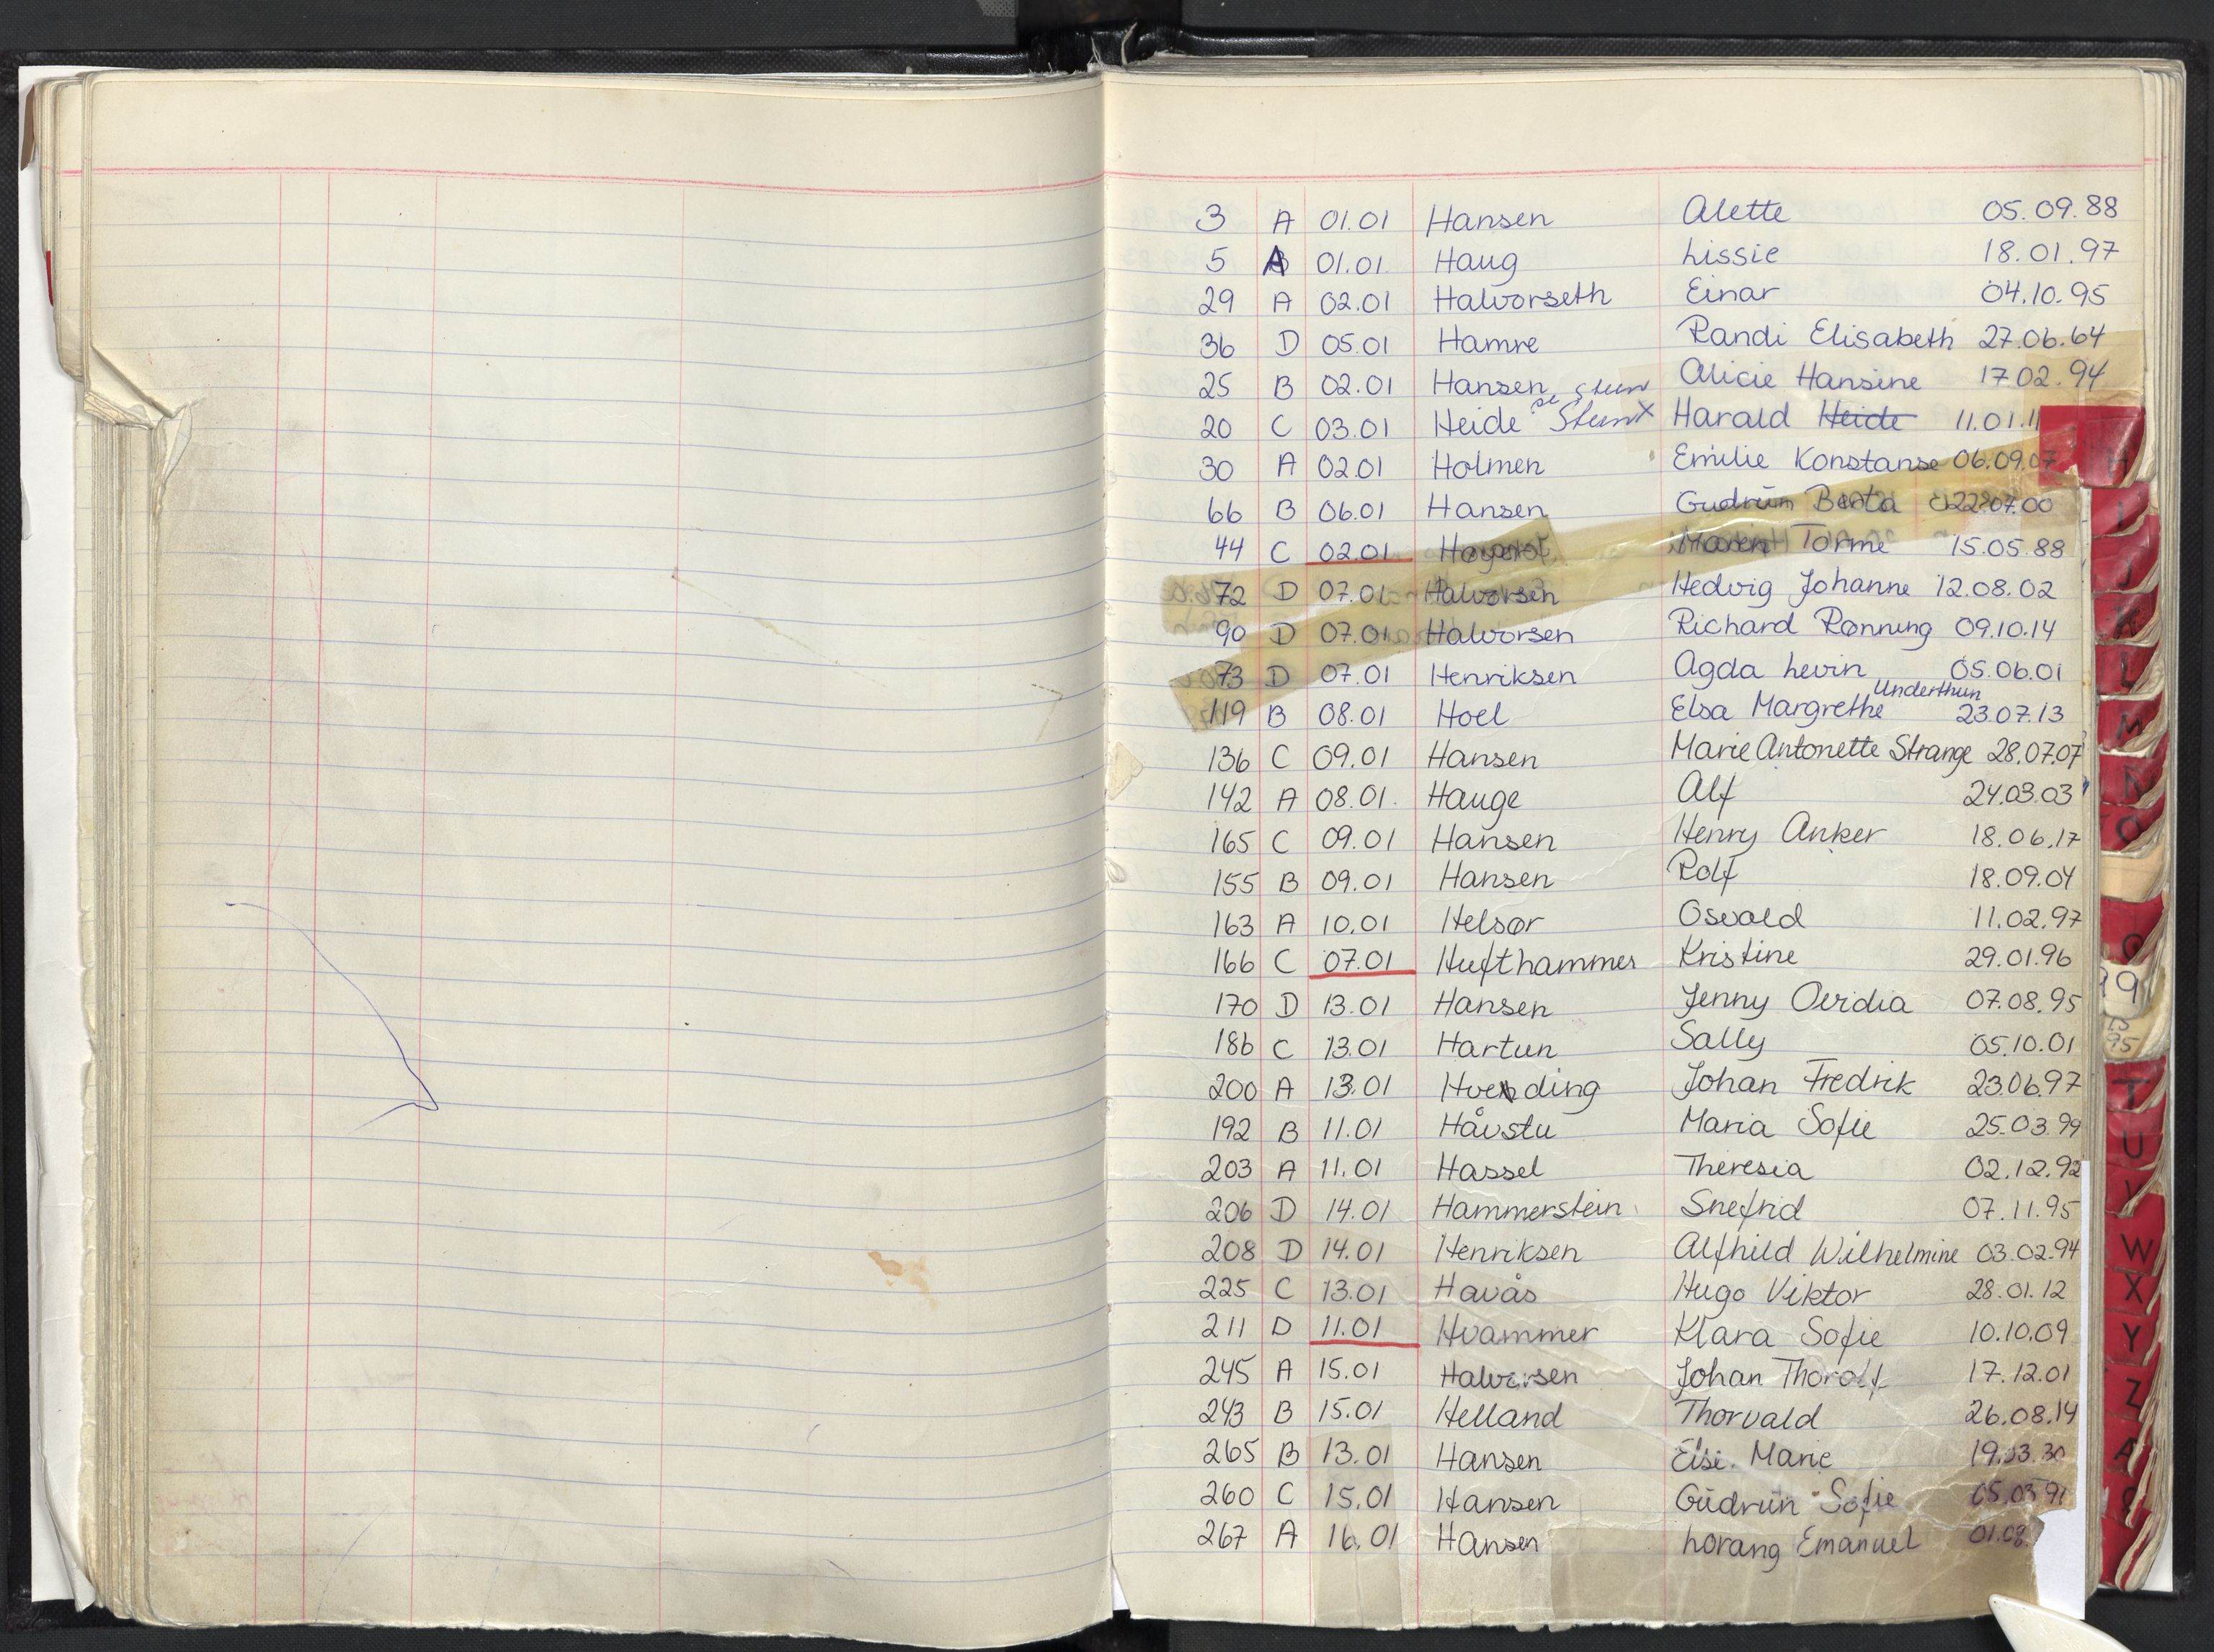 3 A 01.01 Hansen Alette 05.09.88
5 A 01.01 Haug Lissie 18.01.97
29 A 02.01 Halvorseth Einar 04.10.95
36 D 05.01 Hamre Randi Elisabeth 27.06.64
25 B 02.01 Hansen Alicie Hansine 17.02.94
se Steen
20 C 03.01 Heide Steen x Harald Heide 11.01.11
30 A 02.01 Holmen Emilie Konstanse 06.09.07
66 B 06.01 Hansen Gudrun Berta 22.07.00
44 C 02.01 Maren Torme 15.05.88
72 D 07.01 Halvorsen Hedvig Johanne 12.08.02
90 D 07.01 Halvorsen Richard Rønning 09.10.14
73 D 07.01 Henriksen Agda Levin 05.06.01
Underthun
119 B 08.01 Hoel Elsa Margrethe 23.07.13
136 C 09.01 Hansen Marie Antonette Strange 28.07.07
142 A 08.01. Hauge Alf 24.03.03
165 C 09.01 Hansen Henry Anker 18.06.17
155 B 09.01 Hansen Rolf 18.09.04
163 A 10.01 Helsør Osvald 11.02.97
166 C 07.01 Hufthammer Kristine 29.01.96
170 D 13.01 Hansen Jenny Ovidia 07.08.95
186 C 13.01 Hartun Sally 05.10.01
200 A 13.01 Hvending Johan Fredrik 23.06.97
192 B 11.01 Håvstu Maria Sofie 25.03.99
203 A 11.01 Hassel Theresia 02.12.92
206 D 14.01 Hammerstein Snefrid 07.11.95
208 D 14.01 Henriksen Alfhild Wilhelmine 03.02.94
225 C 13.01 Havås Hugo Viktor 28.01.12
211 D 11.01 Hvammer Klara Sofie 10.10.09
245 A 15.01 Halvorsen Johan Thorolf 17.12.01
243 B 15.01 Helland Thorvald 26.08.14
265 B 13.01 Hansen Elsi Marie 19.03.30
260 C 15.01 Hansen Gudrun Sofie 05.03.91
267 A 16.01 Hansen Lorang Emanuel 01.08
H
I
J
K
L
M
N
O
T
U
V
W
X
Y
Z